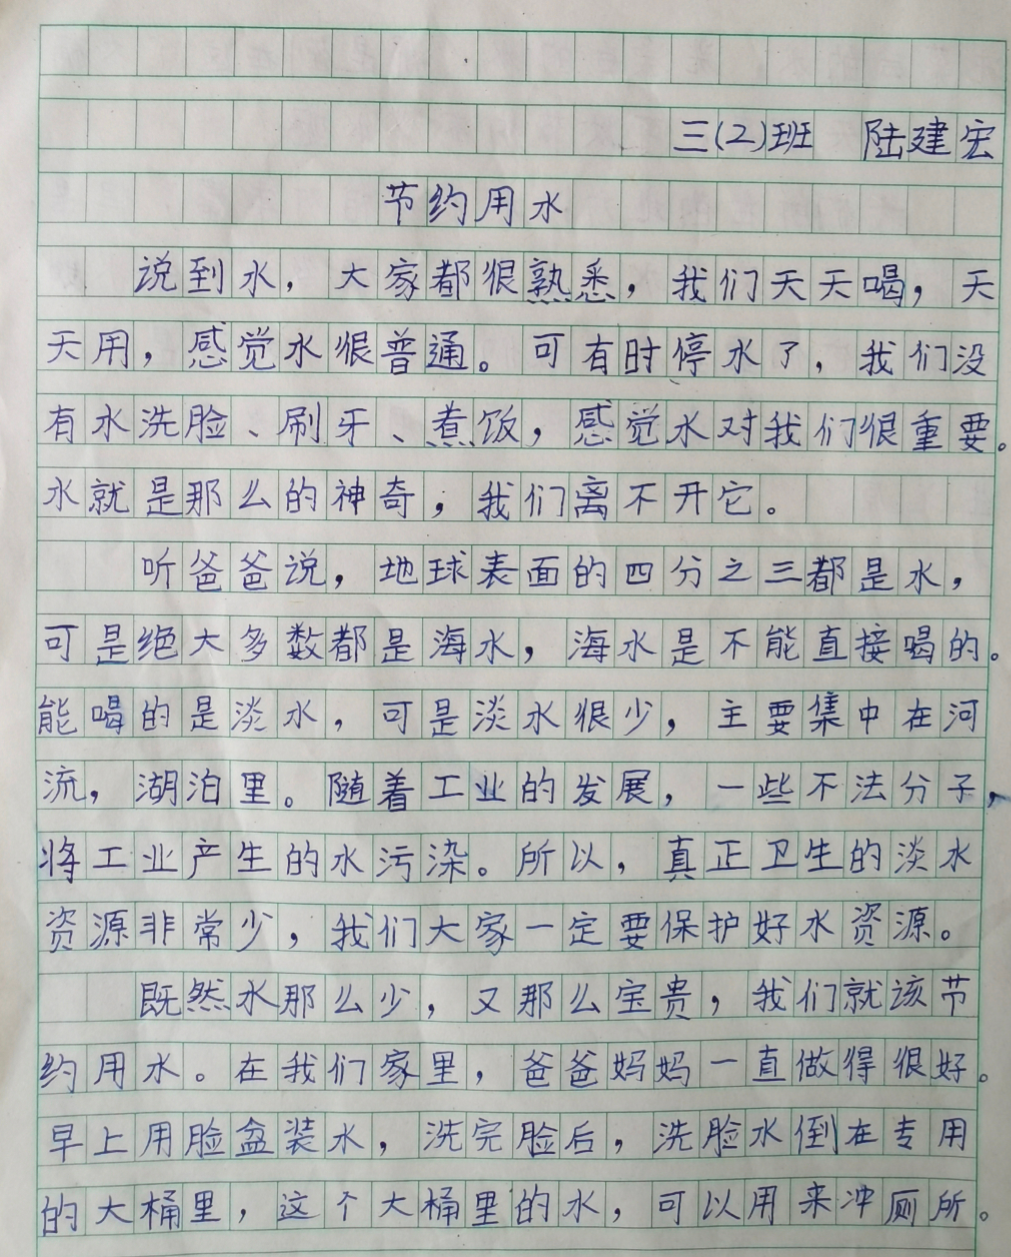 三(2)班 陆建宏
节约用水
说到水，大家都很熟悉，我们天天喝，天
天用，感觉水很普通。可有时停水了，我们没
有水洗脸、刷牙、煮饭，感觉水对我们很重要。
水就是那么的神奇，我们离不开它。
听爸爸说，地球表面的四分之三都是水，
可是绝大多数都是海水，海水是不能直接喝的。
能喝的是淡水，可是淡水很少，主要集中在河
流，湖泊里。随着工业的发展，一些不法分子，
将工业产生的水污染。所以，真正卫生的淡水
资源非常少，我们大家一定要保护好水资源。
既然水那么少，又那么宝贵，我们就该节
约用水。在我们家里，爸爸妈妈一直做得很好。
早上用脸盒装水，洗完脸后，洗脸水倒在专用
的大桶里，这个大桶里的水，可以用来冲厕所。